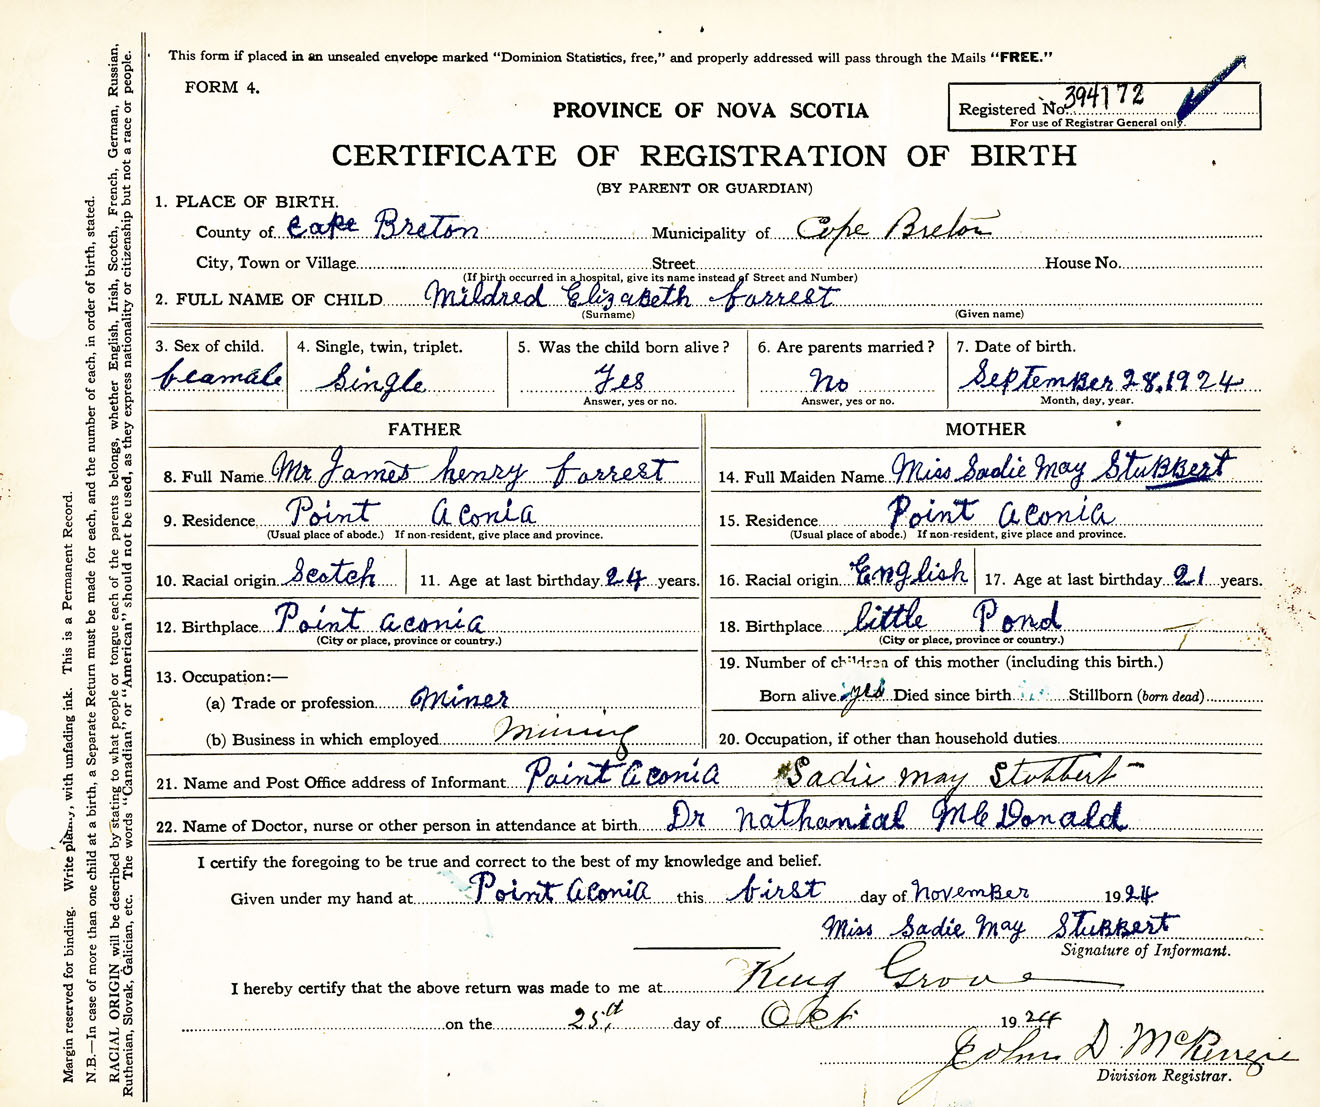 This form if placed in an unsealed envelope marked "Dominion Statistics, free," and properly addressed will pass through the Mails "FREE."
FORM 4.
PROVINCE OF NOVA SCOTIA
Registered No. 394172
For use of Registrar General only.
CERTIFICATE OF REGISTRATION OF BIRTH
(BY PARENT OR GUARDIAN)
1. PLACE OF BIRTH.
County of Cape Breton Municipality of Cape Breton
City, Town or Village Street House No.
(If birth occurred in a hospital, give its name instead of Street and Number)
2. FULL NAME OF CHILD Mildred Elizabeth forrest
(Surname) (Given name)
3. Sex of child. 4. Single, twin, triplet. 5. Was the child born alive? 6. Are parents married? 7. Date of birth.
feamale Single Yes No September 28, 1924
Answer, yes or no. Answer, yes or no. Month, day, year.
FATHER MOTHER
8. Full Name Mr James henry forrest 14. Full Maiden Name Miss Sadie May Stubbert
9. Residence Point Aconia 15. Residence Point Aconia
(Usual place of abode.) If non-resident, give place and province. (Usual place of abode.) If non-resident, give place and province.
10. Racial origin Scotch 11. Age at last birthday 24 years. 16. Racial origin English 17. Age at last birthday 21 years.
12. Birthplace Point Aconia 18. Birthplace little Pond
(City or place, province or country.) (City or place, province or country.)
13. Occupation:— 19. Number of children of this mother (including this birth.)
(a) Trade or profession Miner Born alive yes Died since birth Stillborn (born dead)
(b) Business in which employed Mining 20. Occupation, if other than household duties
21. Name and Post Office address of Informant Point Aconia Sadie May Stubbert
22. Name of Doctor, nurse or other person in attendance at birth Dr Nathanial McDonald
I certify the foregoing to be true and correct to the best of my knowledge and belief.
Given under my hand at Point Aconia this first day of November 1924
Miss Sadie May Stubbert
Signature of Informant.
I hereby certify that the above return was made to me at Grove
on the 25 day of Oct 1924
John D. McKenzie
Division Registrar.
Margin reserved for binding. Write plainly, with unfading ink. This is a Permanent Record.
N.B.—In case of more than one child at a birth, a Separate Return must be made for each, and the number of each, in order of birth, stated.
RACIAL ORIGIN will be described by stating to what people or tongue each of the parents belongs, whether English, Irish, Scotch, French, German, Russian,
Ruthenian, Slovak, Galician, etc. The words "Canadian" or "American" should not be used, as they express nationality or citizenship but not a race or people.